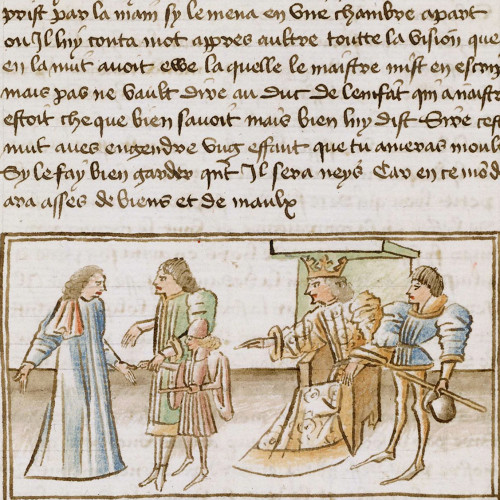 prist par la main sy le mena en vne chambre apart
ou Il luy conta mot appres aultre toutte la vision que
en la nuit auoit ewe la quelle le maistre mist en escri
mais pas ne vault dire au duc de lenfāt qui a naistr
estoit che que bien sauoit mais bien luy dist Sire ceste
nuit aues engendre vng effant que tu ameras moul
Sy le fay bien garder qnt Il sera neys Car en ce mōd
ara asses de biens et de maulx